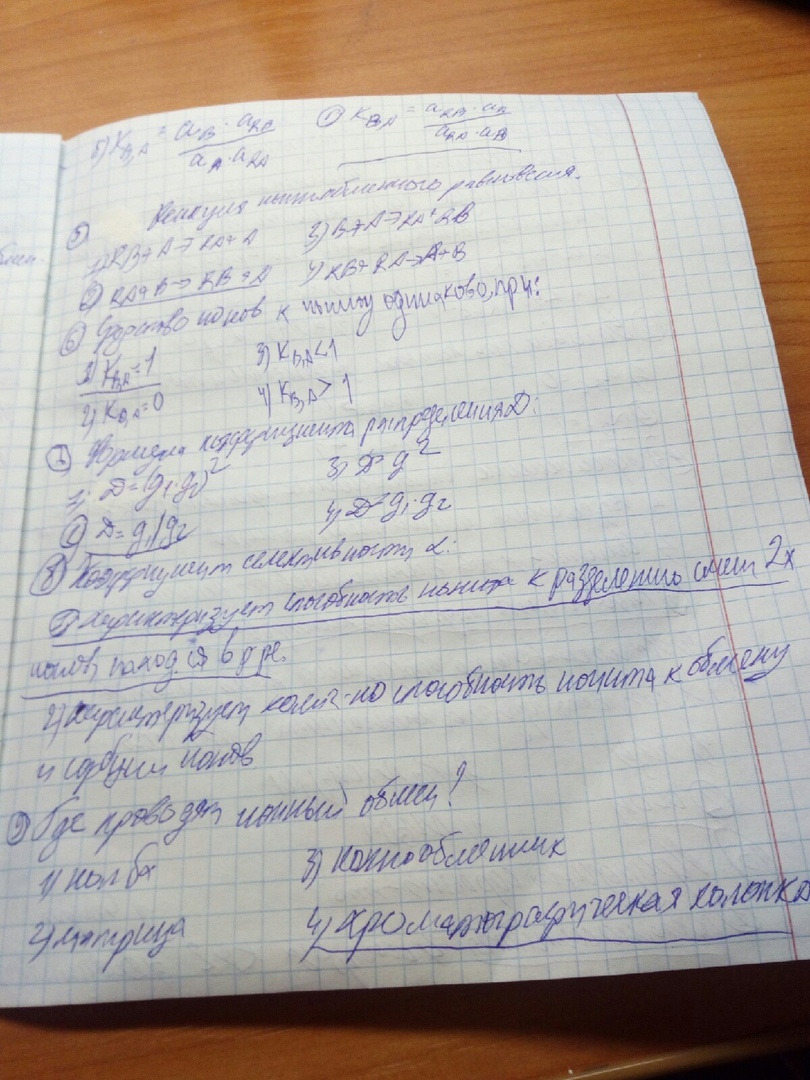 5) K_B,A = a_B · a_RA / a_A · a_RA
K_B,A = a_RB · a_A / a_RA · a_B
5) Реакция ионообменного равновесия.
1) RB+A→RA+A
3) B+A→RA+RB
2) RA+B→RB+A
4) RB+RA→A+B
6) Сродство ионов к иониту одинаково, при:
1) K_B,A=1
3) K_B,A<1
2) K_B,A=0
4) K_B,A>1
7) Формула коэффициента распределения D:
1) D=(g₁·g₂)²
3) D=g²
2) D=g₁/g₂
4) D=g₁·g₂
8) Коэффициент селективности α:
1) характеризует способность ионита к разделению смеси 2х
ионов, наход-ся в р-ре.
2) характеризует колич-ю способность ионита к обмену
и сорбции ионов
9) Где проводят ионный обмен?
1) колба
3) ионнообменник
2) матрица
4) хроматографическая колонка